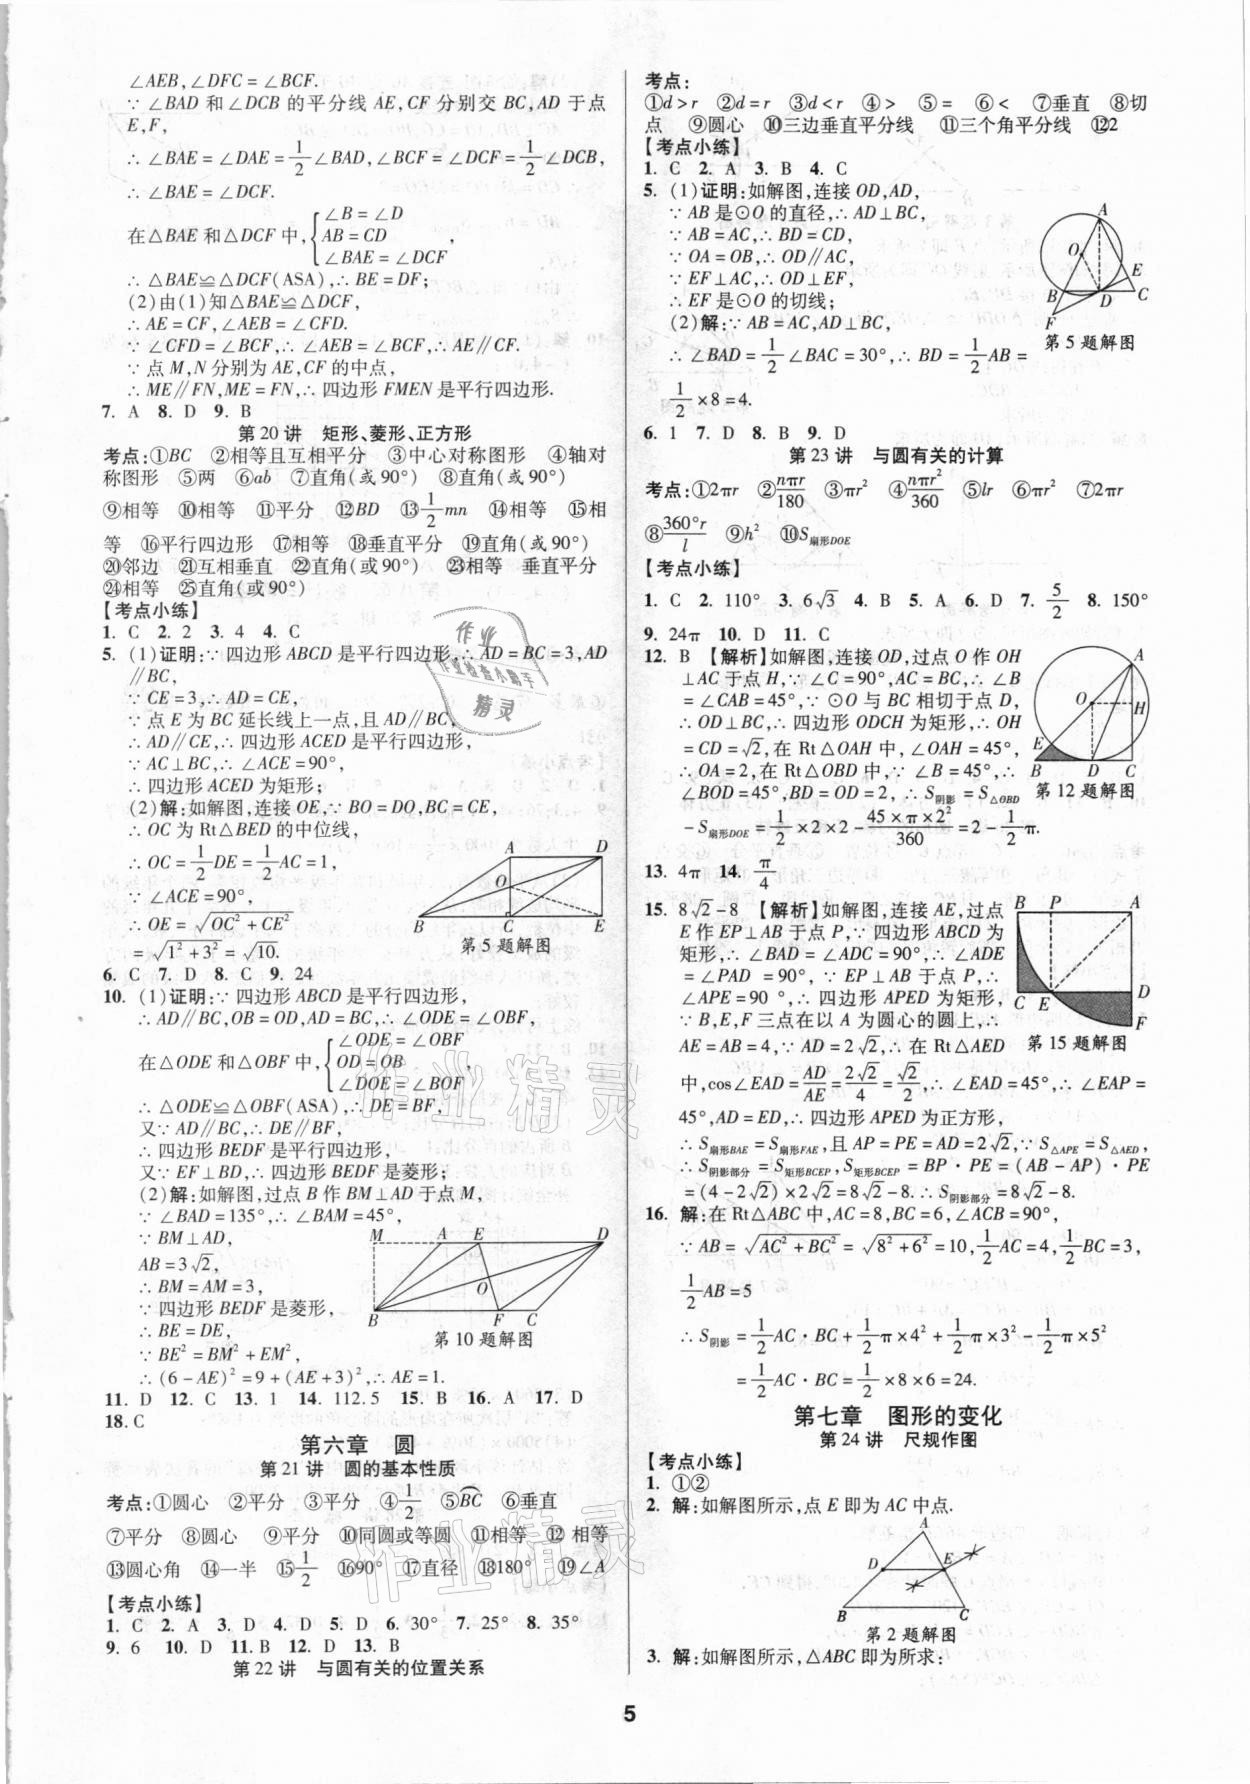 ∠AEB,∠DFC=∠BCF.
∵∠BAD 和∠DCB 的平分线 AE,CF 分别交 BC,AD 于点
E,F,
∴∠BAE=∠DAE=1/2∠BAD,∠BCF=∠DCF=1/2∠DCB,
∴∠BAE=∠DCF.
在△BAE 和△DCF 中,{∠B=∠D
AB=CD
∠BAE=∠DCF,
∴△BAE≌△DCF(ASA),∴BE=DF;
(2)由(1)知△BAE≌△DCF,
∴AE=CF,∠AEB=∠CFD.
∵∠CFD=∠BCF,∴∠AEB=∠BCF,∴AE∥CF.
∵点 M,N 分别为 AE,CF 的中点,
∴ME∥FN,ME=FN,∴四边形 FMEN 是平行四边形.
7. A 8. D 9. B
第 20 讲 矩形、菱形、正方形
考点:①BC ②相等且互相平分 ③中心对称图形 ④轴对
称图形 ⑤两 ⑥ab ⑦直角(或 90°) ⑧直角(或 90°)
⑨相等 ⑩相等 ⑪平分 ⑫BD ⑬1/2mn ⑭相等 ⑮相
等 ⑯平行四边形 ⑰相等 ⑱垂直平分 ⑲直角(或 90°)
⑳邻边 ㉑互相垂直 ㉒直角(或 90°) ㉓相等 垂直平分
㉔相等 ㉕直角(或 90°)
【考点小练】
1. C 2. 2 3. 4 4. C
5. (1)证明:∵四边形 ABCD 是平行四边形,∴AD=BC=3,AD
∥BC,
∵CE=3,∴AD=CE,
∵点 E 为 BC 延长线上一点,且 AD∥BC,
∴AD∥CE,∴四边形 ACED 是平行四边形,
∵AC⊥BC,∴∠ACE=90°,
∴四边形 ACED 为矩形;
(2)解:如解图,连接 OE,∵BO=DO,BC=CE,
∴OC 为 Rt△BED 的中位线,
∴OC=1/2DE=1/2AC=1,
∵∠ACE=90°,
∴OE=√(OC²+CE²)
=√(1²+3²)=√10.
A D O B C E
第 5 题解图
6. C 7. D 8. C 9. 24
10. (1)证明:∵四边形 ABCD 是平行四边形,
∴AD∥BC,OB=OD,AD=BC,∴∠ODE=∠OBF,
在△ODE 和△OBF 中,{∠ODE=∠OBF
OD=OB
∠DOE=∠BOF
∴△ODE≌△OBF(ASA),∴DE=BF,
又∵AD∥BC,∴DE∥BF,
∴四边形 BEDF 是平行四边形,
又∵EF⊥BD,∴四边形 BEDF 是菱形;
(2)解:如解图,过点 B 作 BM⊥AD 于点 M,
∵∠BAD=135°,∴∠BAM=45°,
∵BM⊥AD,
AB=3√2,
∴BM=AM=3,
∵四边形 BEDF 是菱形,
∴BE=DE,
∵BE²=BM²+EM²,
∴(6-AE)²=9+(AE+3)²,∴AE=1.
M A E D O B F C
第 10 题解图
11. D 12. C 13. 1 14. 112.5 15. B 16. A 17. D
18. C
第六章 圆
第 21 讲 圆的基本性质
考点:①圆心 ②平分 ③平分 ④1/2 ⑤BC⌒ ⑥垂直
⑦平分 ⑧圆心 ⑨平分 ⑩同圆或等圆 ⑪相等 ⑫相等
⑬圆心角 ⑭一半 ⑮1/2 ⑯90° ⑰直径 ⑱180° ⑲∠A
【考点小练】
1. C 2. A 3. D 4. D 5. D 6. 30° 7. 25° 8. 35°
9. 6 10. D 11. B 12. D 13. B
第 22 讲 与圆有关的位置关系
考点:
①d>r ②d=r ③d<r ④> ⑤= ⑥< ⑦垂直 ⑧切
点 ⑨圆心 ⑩三边垂直平分线 ⑪三个角平分线 ⑫2
【考点小练】
1. C 2. A 3. B 4. C
5. (1)证明:如解图,连接 OD,AD,
∵AB 是⊙O 的直径,∴AD⊥BC,
∵AB=AC,∴BD=CD,
∵OA=OB,∴OD∥AC,
∵EF⊥AC,∴OD⊥EF,
∴EF 是⊙O 的切线;
(2)解:∵AB=AC,AD⊥BC,
A O E B D C F
第 5 题解图
∴∠BAD=1/2∠BAC=30°,∴BD=1/2AB=
1/2×8=4.
6. 1 7. D 8. B 9. D
第 23 讲 与圆有关的计算
考点:①2πr ②nπr/180 ③πr² ④nπr²/360 ⑤lr ⑥πr² ⑦2πr
⑧360°r/l ⑨h² ⑩S扇形DOE
【考点小练】
1. C 2. 110° 3. 6√3 4. B 5. A 6. D 7. 5/2 8. 150°
9. 24π 10. D 11. C
12. B 【解析】如解图,连接 OD,过点 O 作 OH
⊥AC 于点 H,∵∠C=90°,AC=BC,∴∠B
=∠CAB=45°,∵⊙O 与 BC 相切于点 D,
∴OD⊥BC,∴四边形 ODCH 为矩形,∴OH
=CD=√2,在 Rt△OAH 中,∠OAH=45°,
∴OA=2,在 Rt△OBD 中,∵∠B=45°,∴
∠BOD=45°,BD=OD=2,∴S阴影=S△OBD
-S扇形DOE=1/2×2×2-45×π×2²/360=2-1/2π.
A O H E B D C
第 12 题解图
13. 4π 14. π/4
15. 8√2-8 【解析】如解图,连接 AE,过点
E 作 EP⊥AB 于点 P,∵四边形 ABCD 为
矩形,∴∠BAD=∠ADC=90°,∴∠ADE
=∠PAD=90°,∵EP⊥AB 于点 P,∴
∠APE=90°,∴四边形 APED 为矩形,
∵B,E,F 三点在以 A 为圆心的圆上,∴
AE=AB=4,∵AD=2√2,∴在 Rt△AED
中,cos∠EAD=AD/AE=2√2/4=√2/2,∴∠EAD=45°,∴∠EAP=
45°,AD=ED,∴四边形 APED 为正方形,
∴S扇形BAE=S扇形FAE,且 AP=PE=AD=2√2,∵S△APE=S△AED,
∴S阴影部分=S矩形BCEP,S矩形BCEP=BP·PE=(AB-AP)·PE
=(4-2√2)×2√2=8√2-8.∴S阴影部分=8√2-8.
B P A C E D F
第 15 题解图
16. 解:在 Rt△ABC 中,AC=8,BC=6,∠ACB=90°,
∵AB=√(AC²+BC²)=√(8²+6²)=10,1/2AC=4,1/2BC=3,
1/2AB=5
∴S阴影=1/2AC·BC+1/2π×4²+1/2π×3²-1/2π×5²
=1/2AC·BC=1/2×8×6=24.
第七章 图形的变化
第 24 讲 尺规作图
【考点小练】
1. ①②
2. 解:如解图所示,点 E 即为 AC 中点.
A D E B C
第 2 题解图
3. 解:如解图所示,△ABC 即为所求:
5
作业
作业检查小助手
精灵
作业精灵
作业精灵